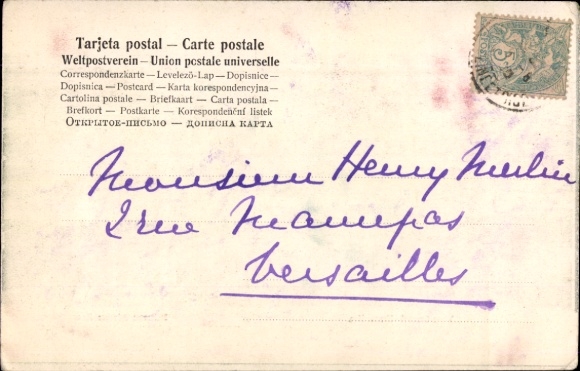 Tarjeta postal — Carte postale
Weltpostverein — Union postale universelle
Correspondenzkarte — Levelező-Lap — Dopisnice —
Dopisnica — Postcard — Karta korespondencyjna —
Cartolina postale — Briefkaart — Carta postala —
Brefkort — Postkarte — Korespondenční listek
Открытое-письмо — дописна карта
5
Monsieur Henry Merlin
2 rue Maurepas
Versailles